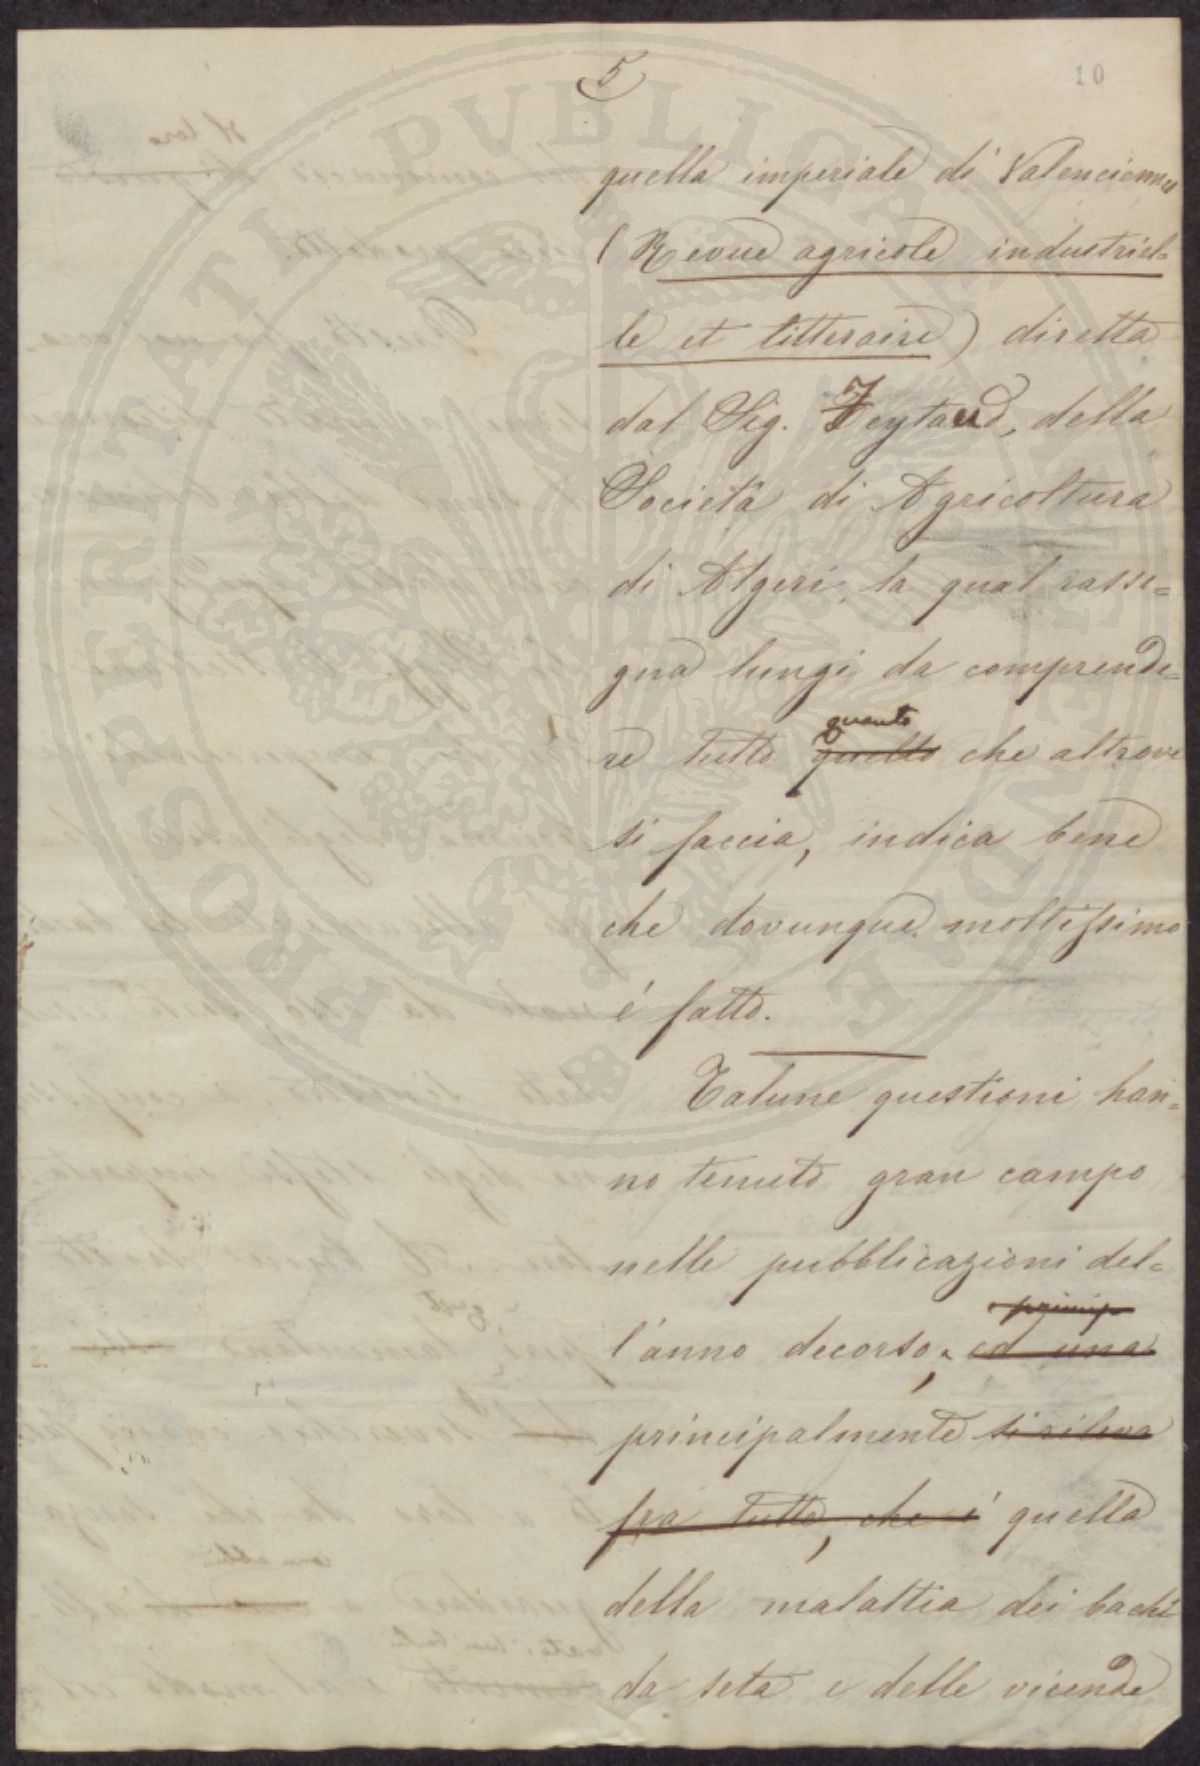 5
10
quella imperiale di Valenciennes
(Revue agricole industriel=
le et litteraire) diretta
dal Sig. Feytaud, della
Società di Agricoltura
di Algeri, la qual rasse=
gna lungi da comprende=
quanto
re tutto quello che altrove
si faccia, indica bene
che dovunque moltissimo
é fatto.
Talune questioni han=
no tenuto gran campo
nelle pubblicazioni del=
princip
l'anno decorso, ed una
principalmente si rileva
fra tutte, che é quella
della malattia dei bachi
da seta e delle vicende
PROSPERITATI PVBLICAE